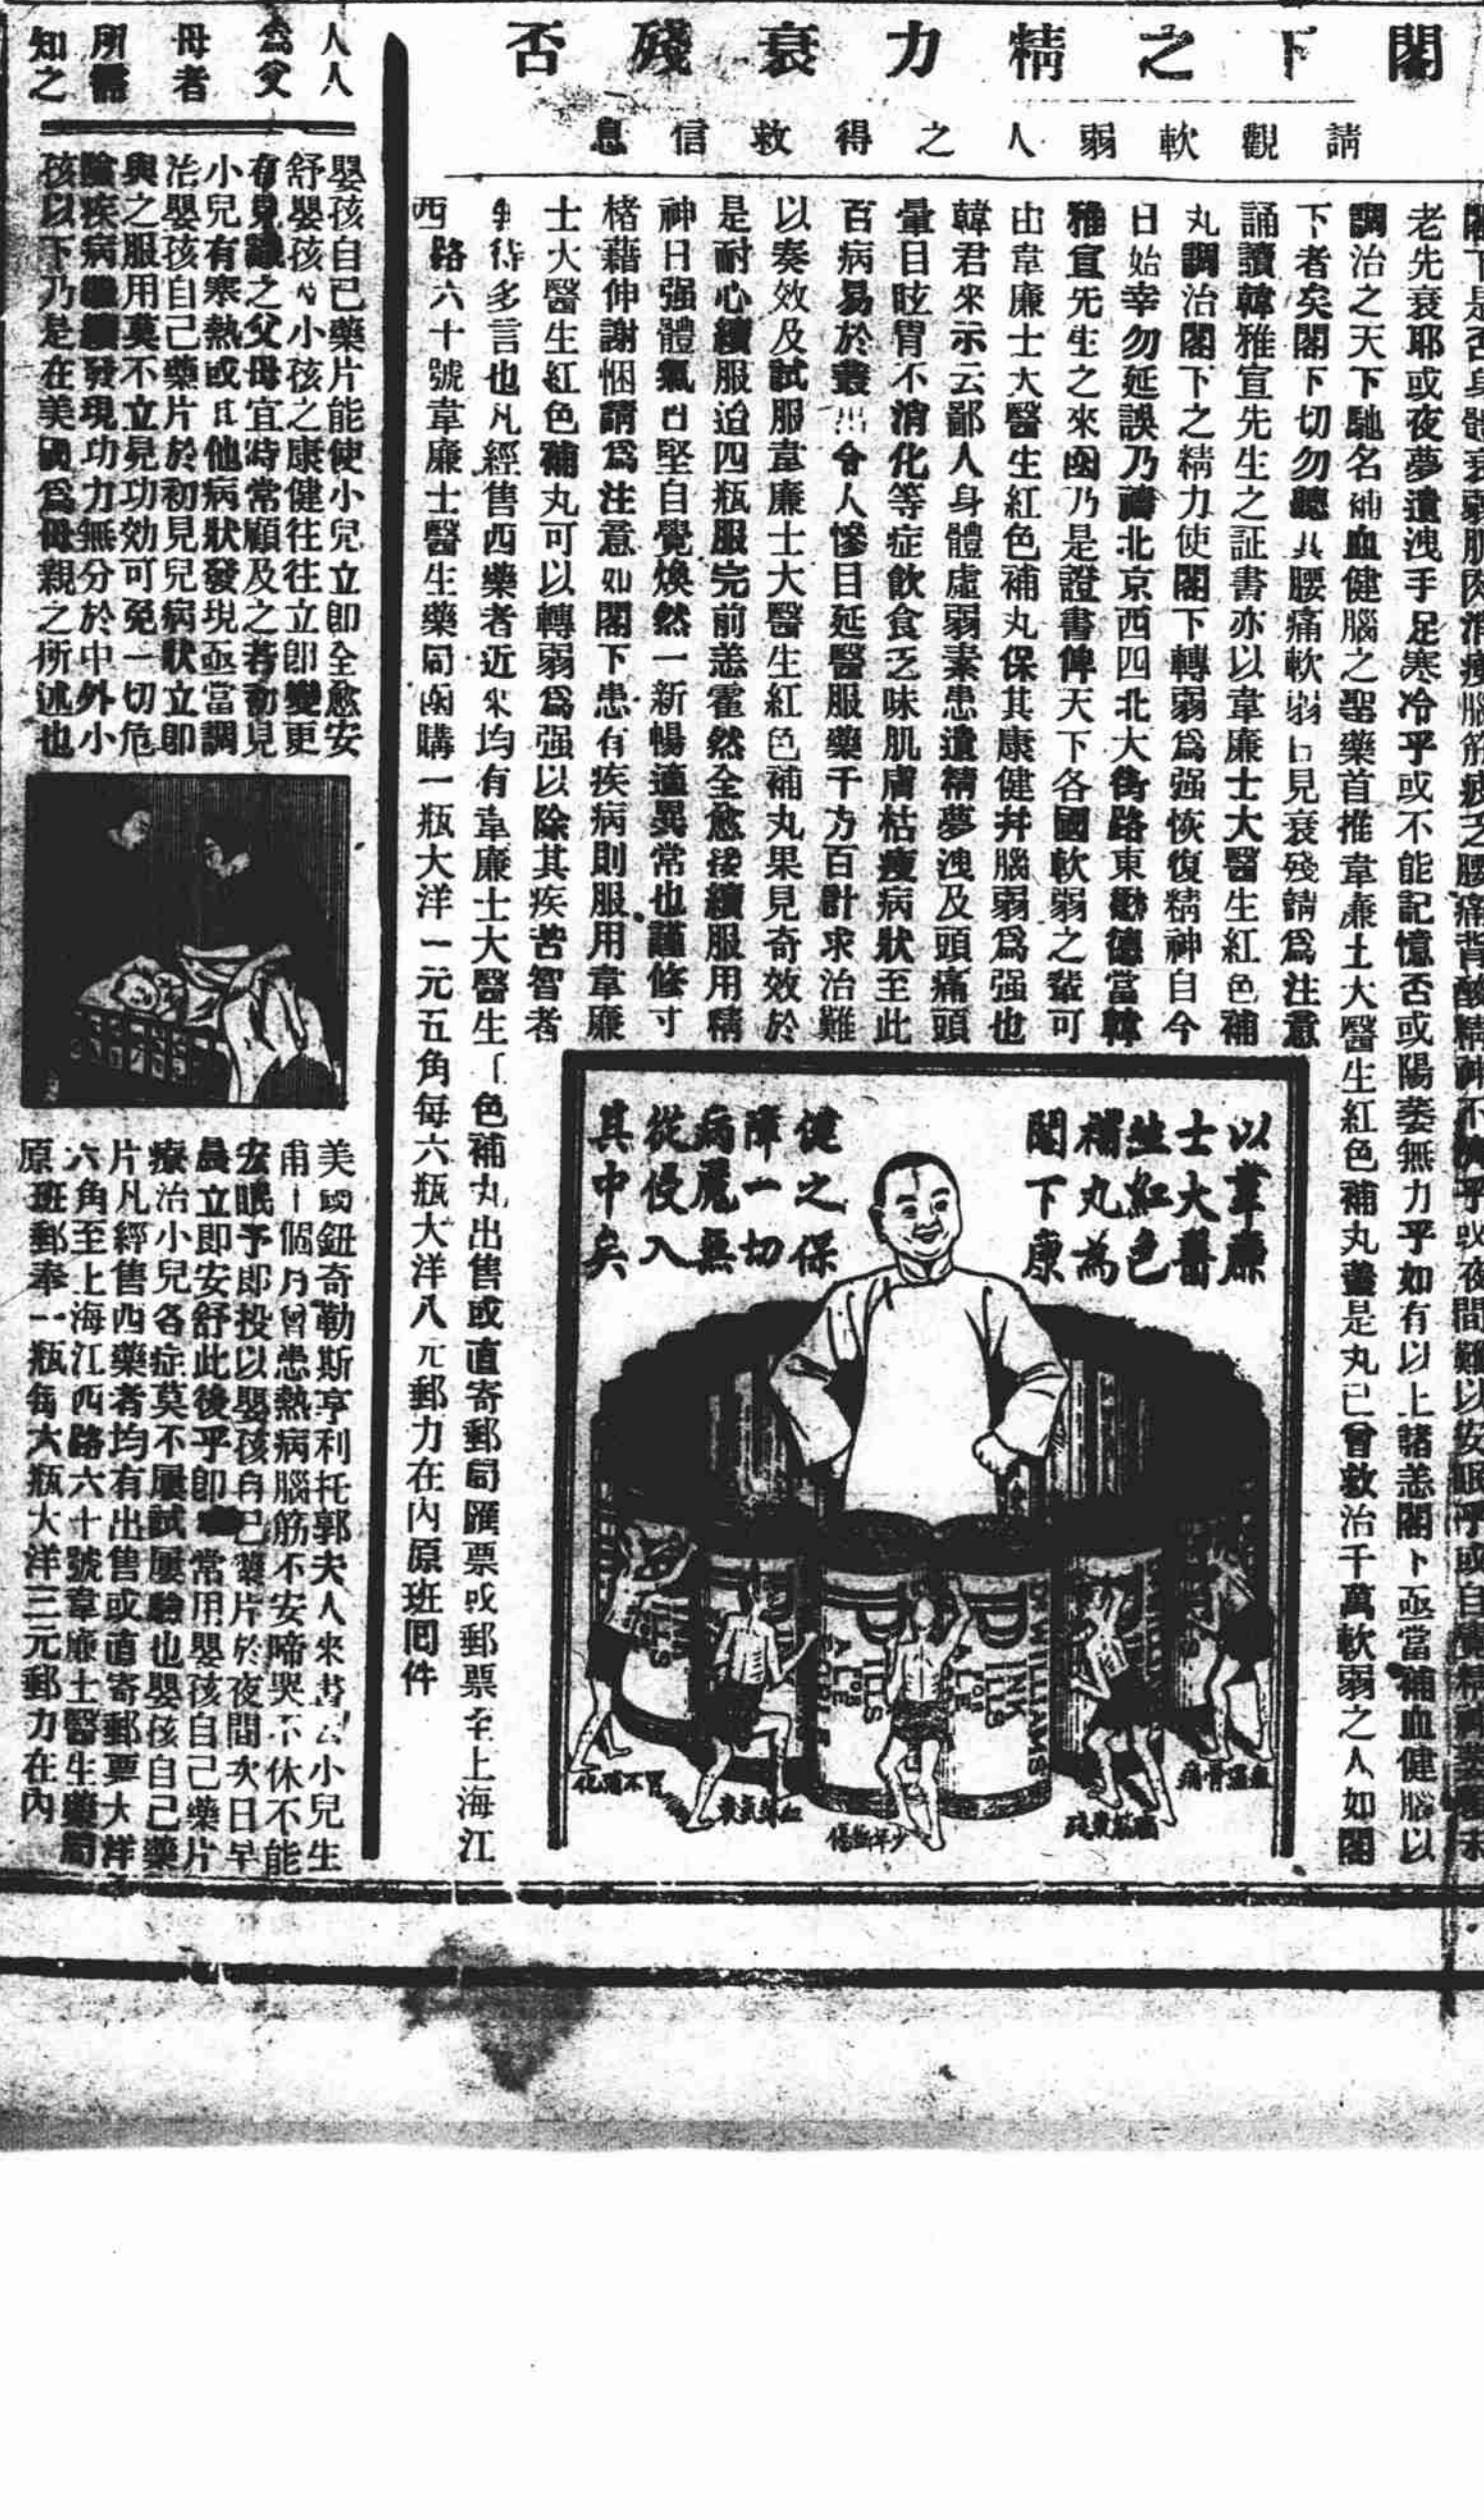 閣下之精力衰殘否
請觀軟弱人之得救信息
老先衰耶或夜夢遺洩手足寒冷乎或不能記憶否或陽萎無力乎如有以上諸恙閣下亟當補血健腦以
調治之天下馳名補血健腦之聖藥首推韋廉士大醫生紅色補丸蓋是丸已曾救治千萬軟弱之人如閣
下者矣閣下切勿聽其腰痛軟弱日見衰殘請爲注意
誦讀韓雅宣先生之証書亦以韋廉士大醫生紅色補
丸調治閣下之精力使閣下轉弱爲强恢復精神自今
日始幸勿延誤乃禱北京西四北大街路東懋德當韓
雅宣先生之來函乃是證書俾天下各國軟弱之輩可
由韋廉士大醫生紅色補丸保其康健幷腦弱爲强也
韓君來示云鄙人身體虛弱素患遺精夢洩及頭痛頭
暈目眩胃不消化等症飲食乏味肌膚枯瘦病狀至此
百病易於叢出令人慘目延醫服藥千方百計求治難
以奏效及試服韋廉士大醫生紅色補丸果見奇效於
是耐心續服迨四瓶服完前恙霍然全愈後續服用精
神日强體氣日堅自覺煥然一新暢適異常也謹修寸
楮藉伸謝悃請爲注意如閣下患有疾病則服用韋廉
士大醫生紅色補丸可以轉弱爲强以除其疾苦智者
待多言也凡經售西藥者近來均有韋廉士大醫生色補丸出售或直寄郵局匯票或郵票至上海江
西路六十號韋廉士醫生藥局函購一瓶大洋一元五角每六瓶大洋八元郵力在內原班回件
以韋廉
士大醫
生紅色
補丸為
閣下康
健之保
障一切
病魔無
從侵入
其中矣
DR WILLIAMS
PINK
PILLS
FOR
PALE
血薄骨痛
腦筋衰殘
少年斲傷
血薄氣衰
胃不消化
人人
爲父
母者
所需
知之
嬰孩自己藥片能使小兒立卽全愈安
舒嬰孩小孩之康健往往立卽變更
有見識之父母宜時常顧及之若動見
小兒有寒熱或其他病狀發現亟當調
治嬰孩自己藥片於初見兒病狀立卽
與之服用莫不立見功効可免一切危
險疾病繼續發現功力無分於中外小
孩以下乃是在美國爲母親之所述也
美國鈕奇勒斯亨利托郭夫人來書云小兒生
甫十個月曾患熱病腦筋不安啼哭不休不能
安眠予卽投以嬰孩自己藥片於夜間次日早
晨立卽安舒此後乎卽常用嬰孩自己藥片
療治小兒各症莫不屢試屢驗也嬰孩自己藥
片凡經售西藥者均有出售或直寄郵票大洋
六角至上海江西路六十號韋廉士醫生藥局
原班郵奉一瓶每六瓶大洋三元郵力在內